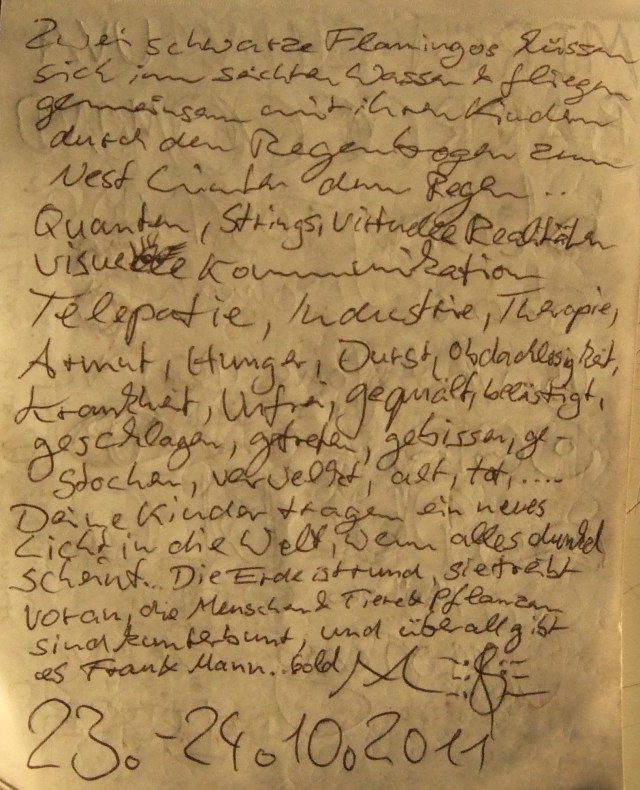 Zwei schwarze Flamingos küssen
sich im seichten Wasser & fliegen
gemeinsam mit ihren Kindern
durch den Regenbogen zum
Nest hinter dem Regen...
Quanten, Strings, Virtuelle Realitäten
visuelle Kommunikation
Telepatie, Industrie, Therapie,
Armut, Hunger, Durst, Obdachlosigkeit,
Krankheit, Unfrei, gequält, belästigt,
geschlagen, getreten, gebissen, ge-
stochen, verwelkt, alt, tot, .....
Deine Kinder tragen ein neues
Licht in die Welt, wenn alles dunkel
scheint... Die Erde ist rund, sie treibt
voran, die Menschen & Tiere & Pflanzen
sind kunterbunt, und überall gibt
es Frank Mann..
23.-24.10.2011